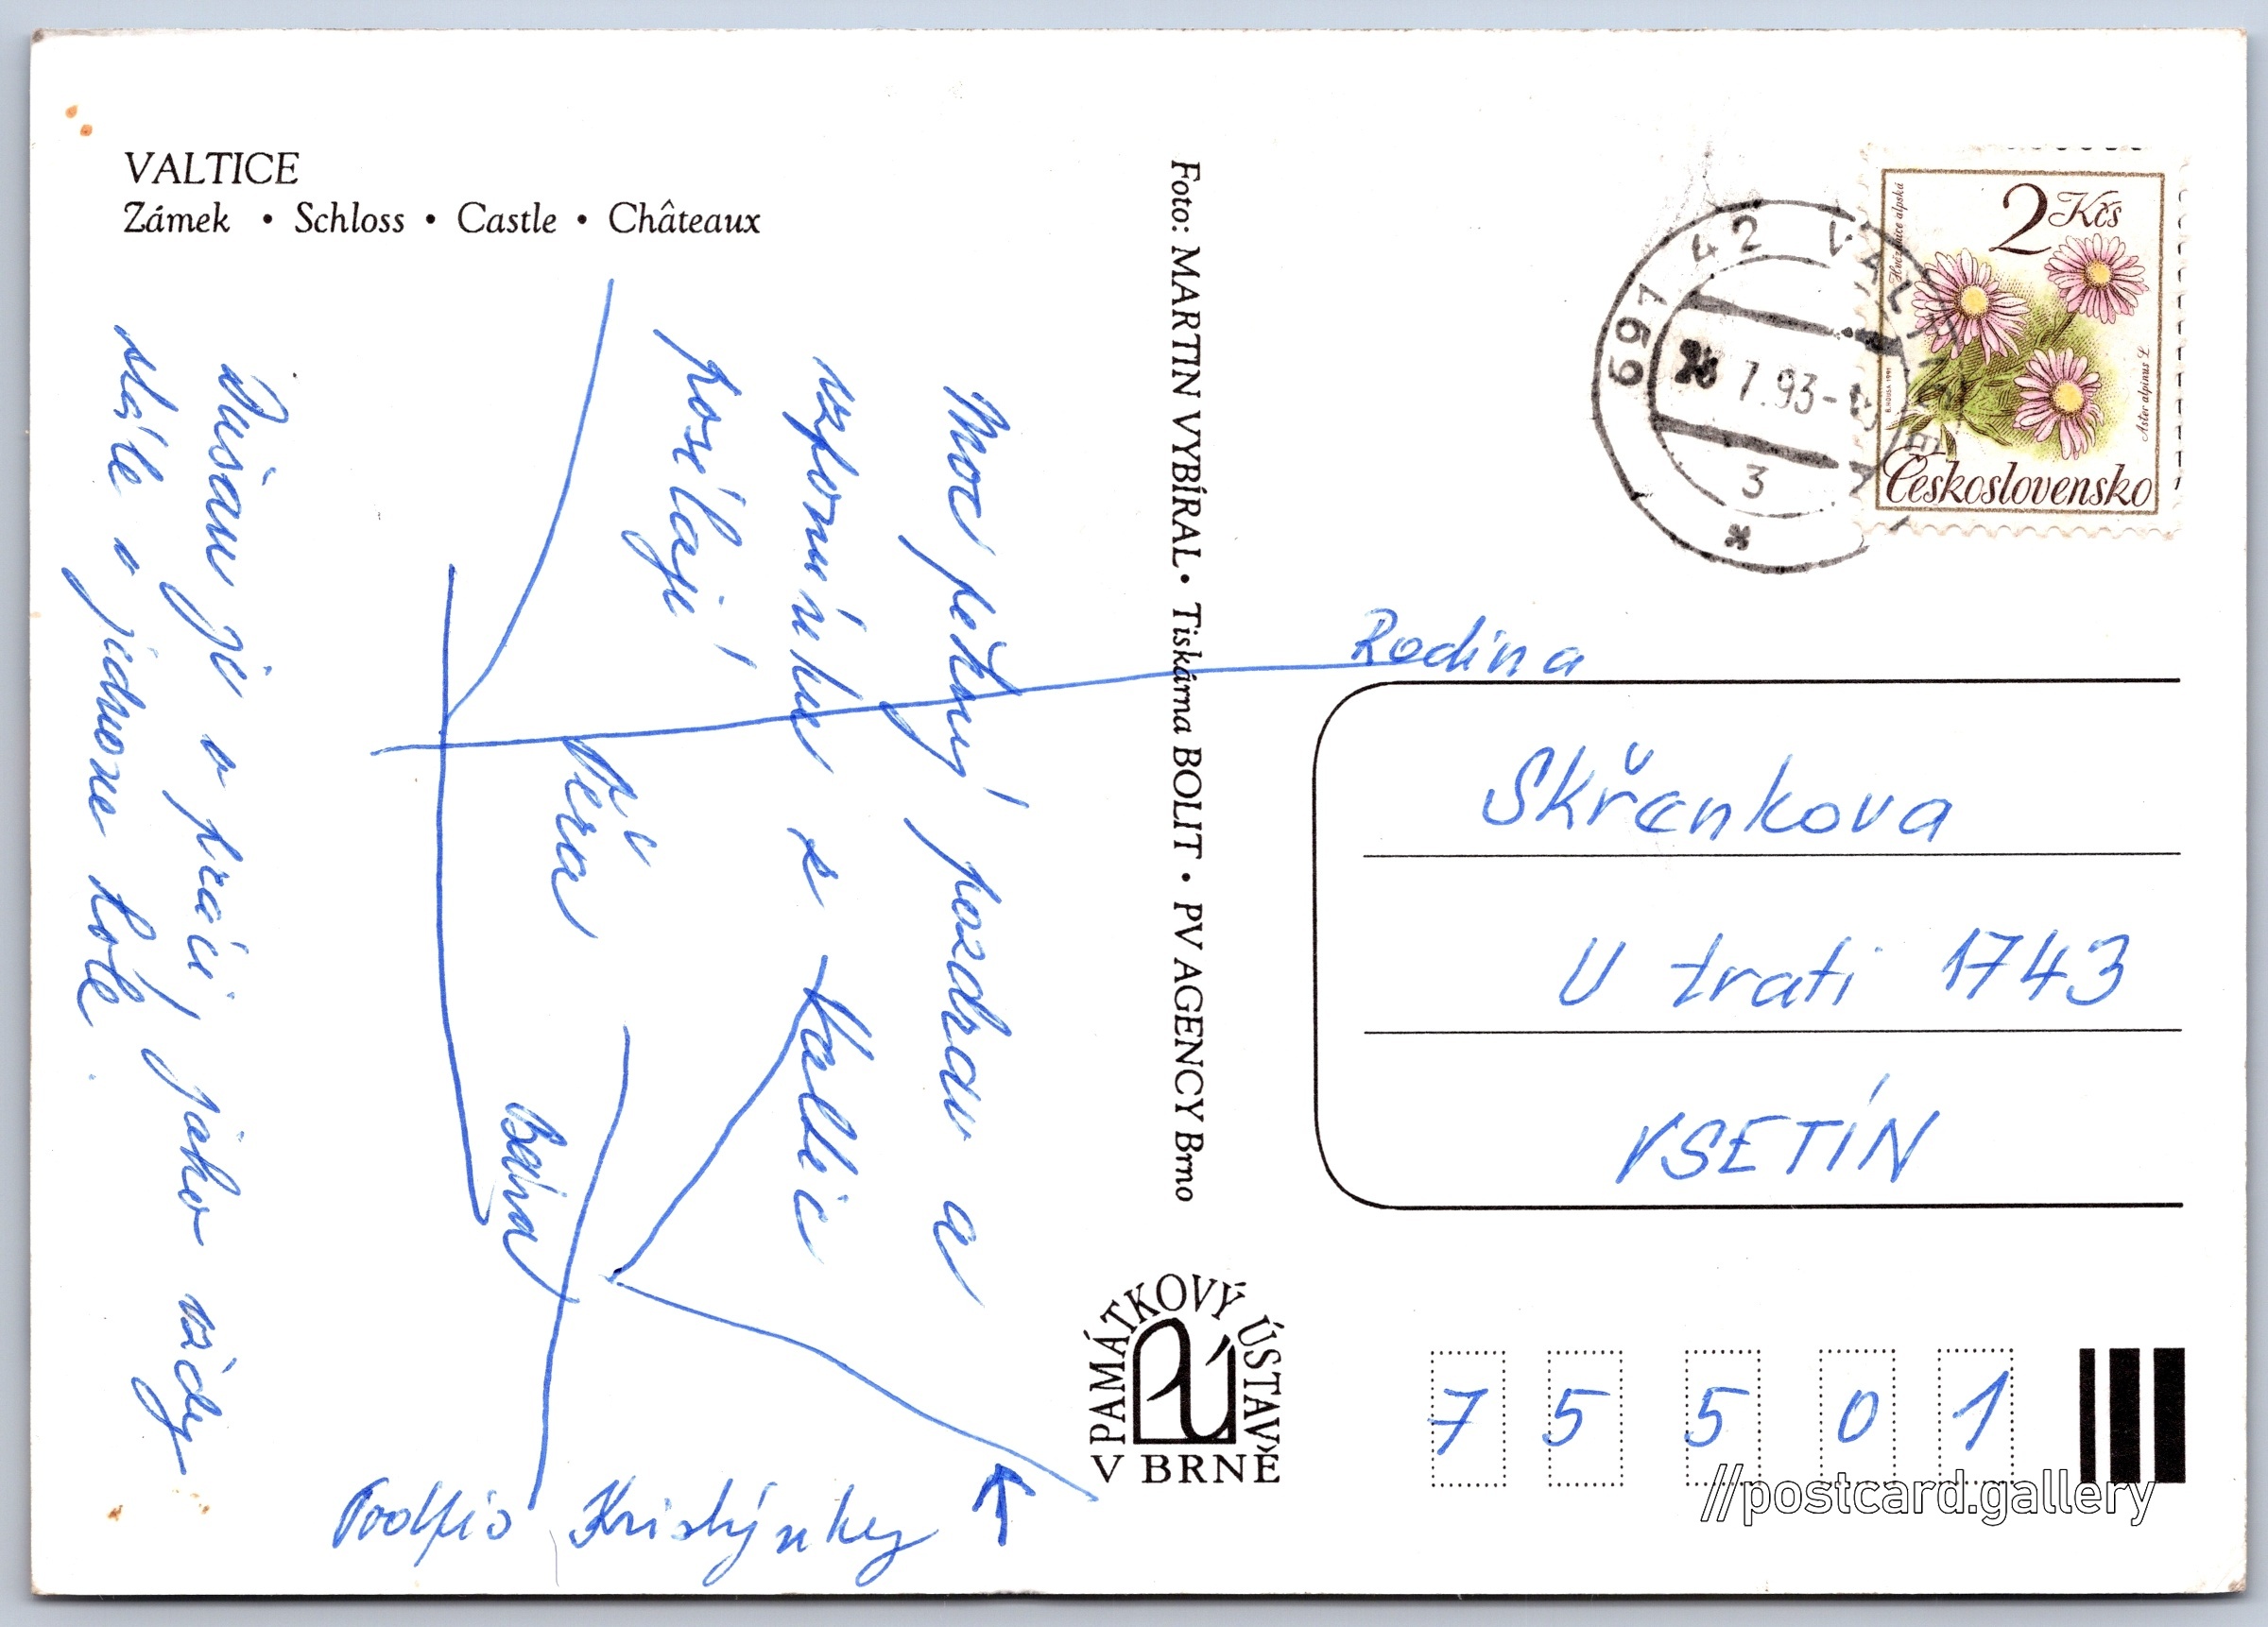 VALTICE
Zámek • Schloss • Castle • Châteaux
Moc pěkný pozdrav a
vzpomínku z Valtic
posílají
Věra
Bára
Dušan je v práci, jako vždy
stále v jednom kole.
Podpis Kristýnky
Foto: MARTIN VYBÍRAL • Tiskárna BOLIT • PV AGENCY Brno
PAMÁTKOVÝ ÚSTAV
V BRNĚ
697 42 VALTICE
7.93-
3
2 Kčs
Hvězdnice alpská
Aster alpinus L.
B. HOUSA 1991
Československo
Rodina
Skřenkova
U trati 1743
VSETÍN
7 5 5 0 1
//postcard.gallery